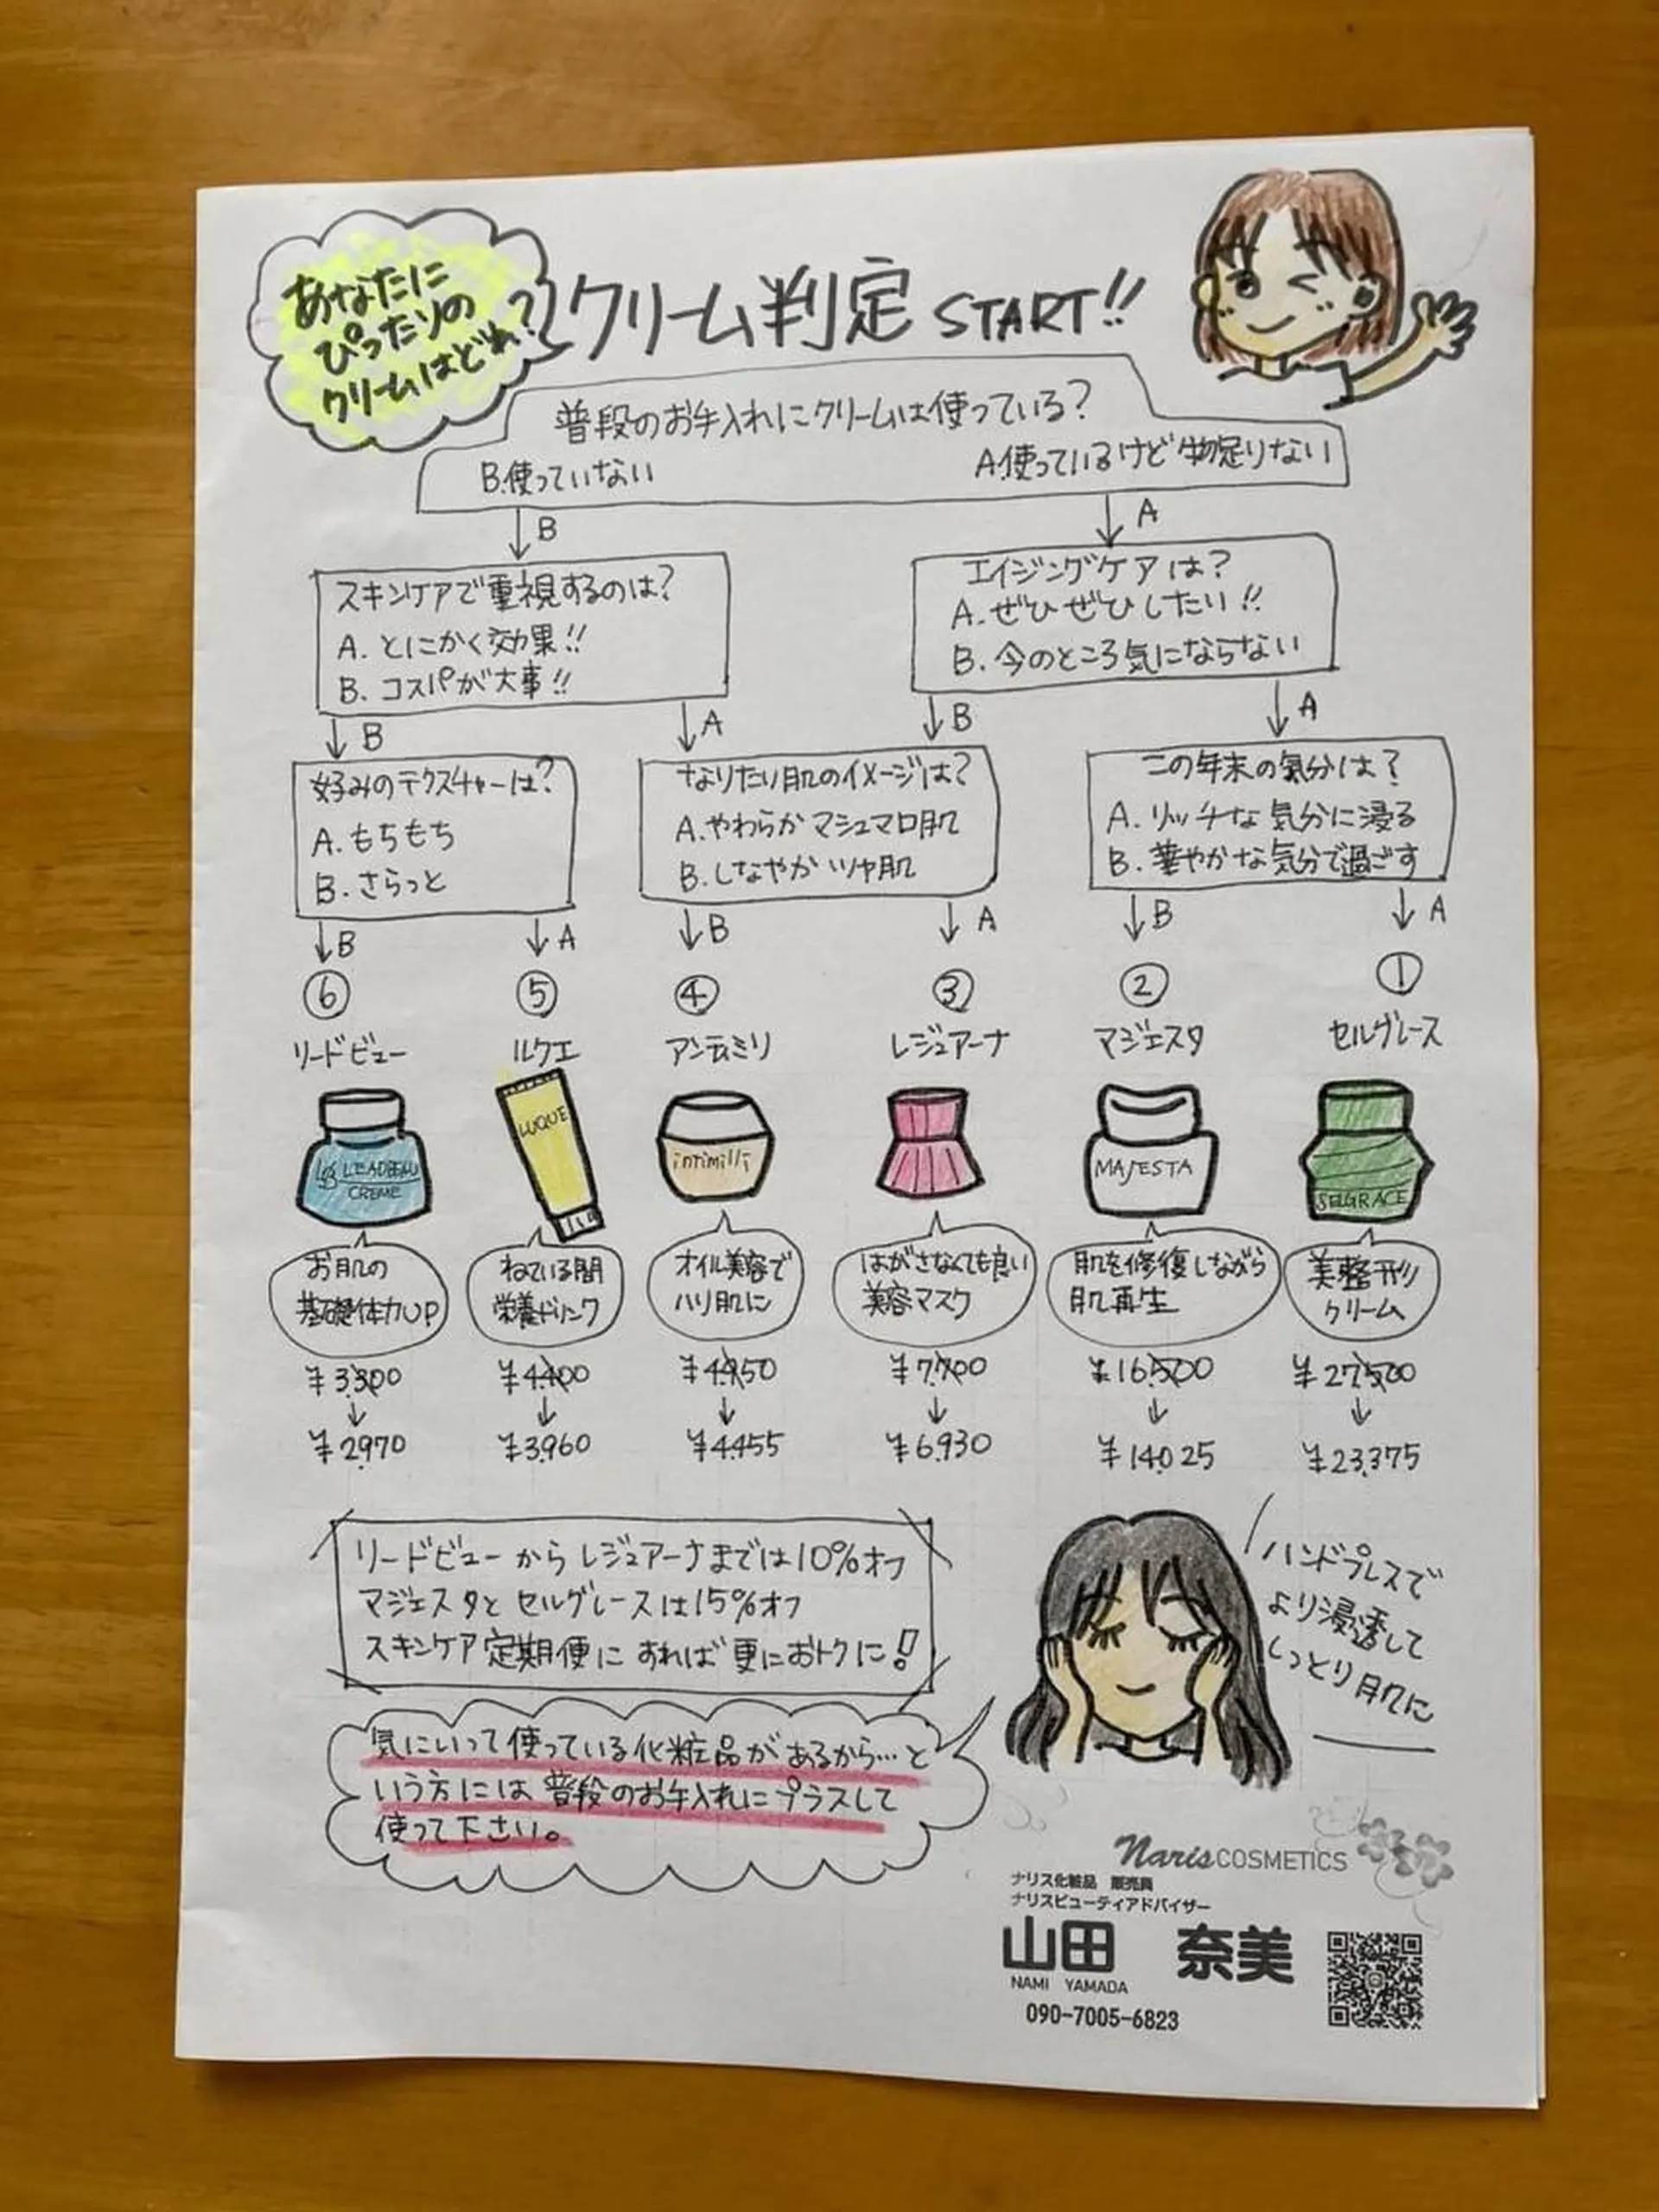 あなたに
ぴったりの
クリームはどれ?
クリーム判定 START!!
普段のお手入れにクリームは使っている?
B.使っていない
A.使っているけど物足りない
B
A
スキンケアで重視するのは?
A. とにかく効果!!
B. コスパが大事!!
エイジングケアは?
A. ぜひぜひしたい!!
B. 今のところ気にならない
B
A
B
A
好みのテクスチャーは?
A. もちもち
B. さらっと
なりたい肌のイメージは?
A.やわらかマシュマロ肌
B.しなやかツヤ肌
この年末の気分は?
A. リッチな気分に浸る
B. 華やかな気分で過ごす
B
A
B
A
B
A
⑥
⑤
④
③
②
①
リードビュー
ルクエ
アンティミリ
レジュアーナ
マジェスタ
セルグレース
LEADBEAU
CREME
LUQUE
intimilli
MAJESTA
SELGRACE
お肌の
基礎体力UP
ねている間
栄養ドリンク
オイル美容で
ハリ肌に
はがさなくても良い
美容マスク
肌を修復しながら
肌再生
美整形
クリーム
¥3,300
¥4,400
¥4,950
¥7,700
¥16,500
¥27,500
¥2,970
¥3,960
¥4,455
¥6,930
¥14,025
¥23,375
リードビューからレジュアーナまでは10%オフ
マジェスタとセルグレースは15%オフ
スキンケア定期便にすれば更におトクに!
ハンドプレスで
より浸透して
しっとり肌に
気にいって使っている化粧品があるから…と
いう方には普段のお手入れにプラスして
使って下さい。
Naris COSMETICS
ナリス化粧品 販売員
ナリスビューティアドバイザー
山田 奈美
NAMI YAMADA
090-7005-6823